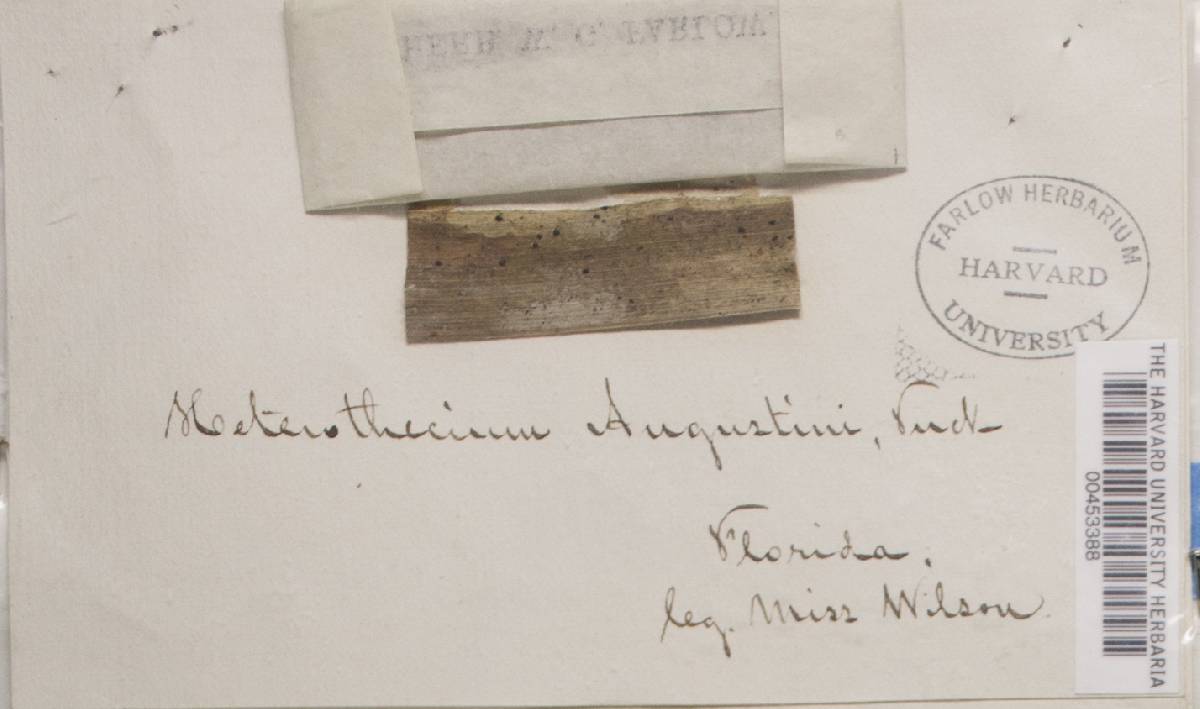 HERB. W. G. FARLOW.
FARLOW HERBARIUM
HARVARD
UNIVERSITY
Heterothecium Augustini, Tuck
Florida.
leg. Miss Wilson
THE HARVARD UNIVERSITY HERBARIA
00453388